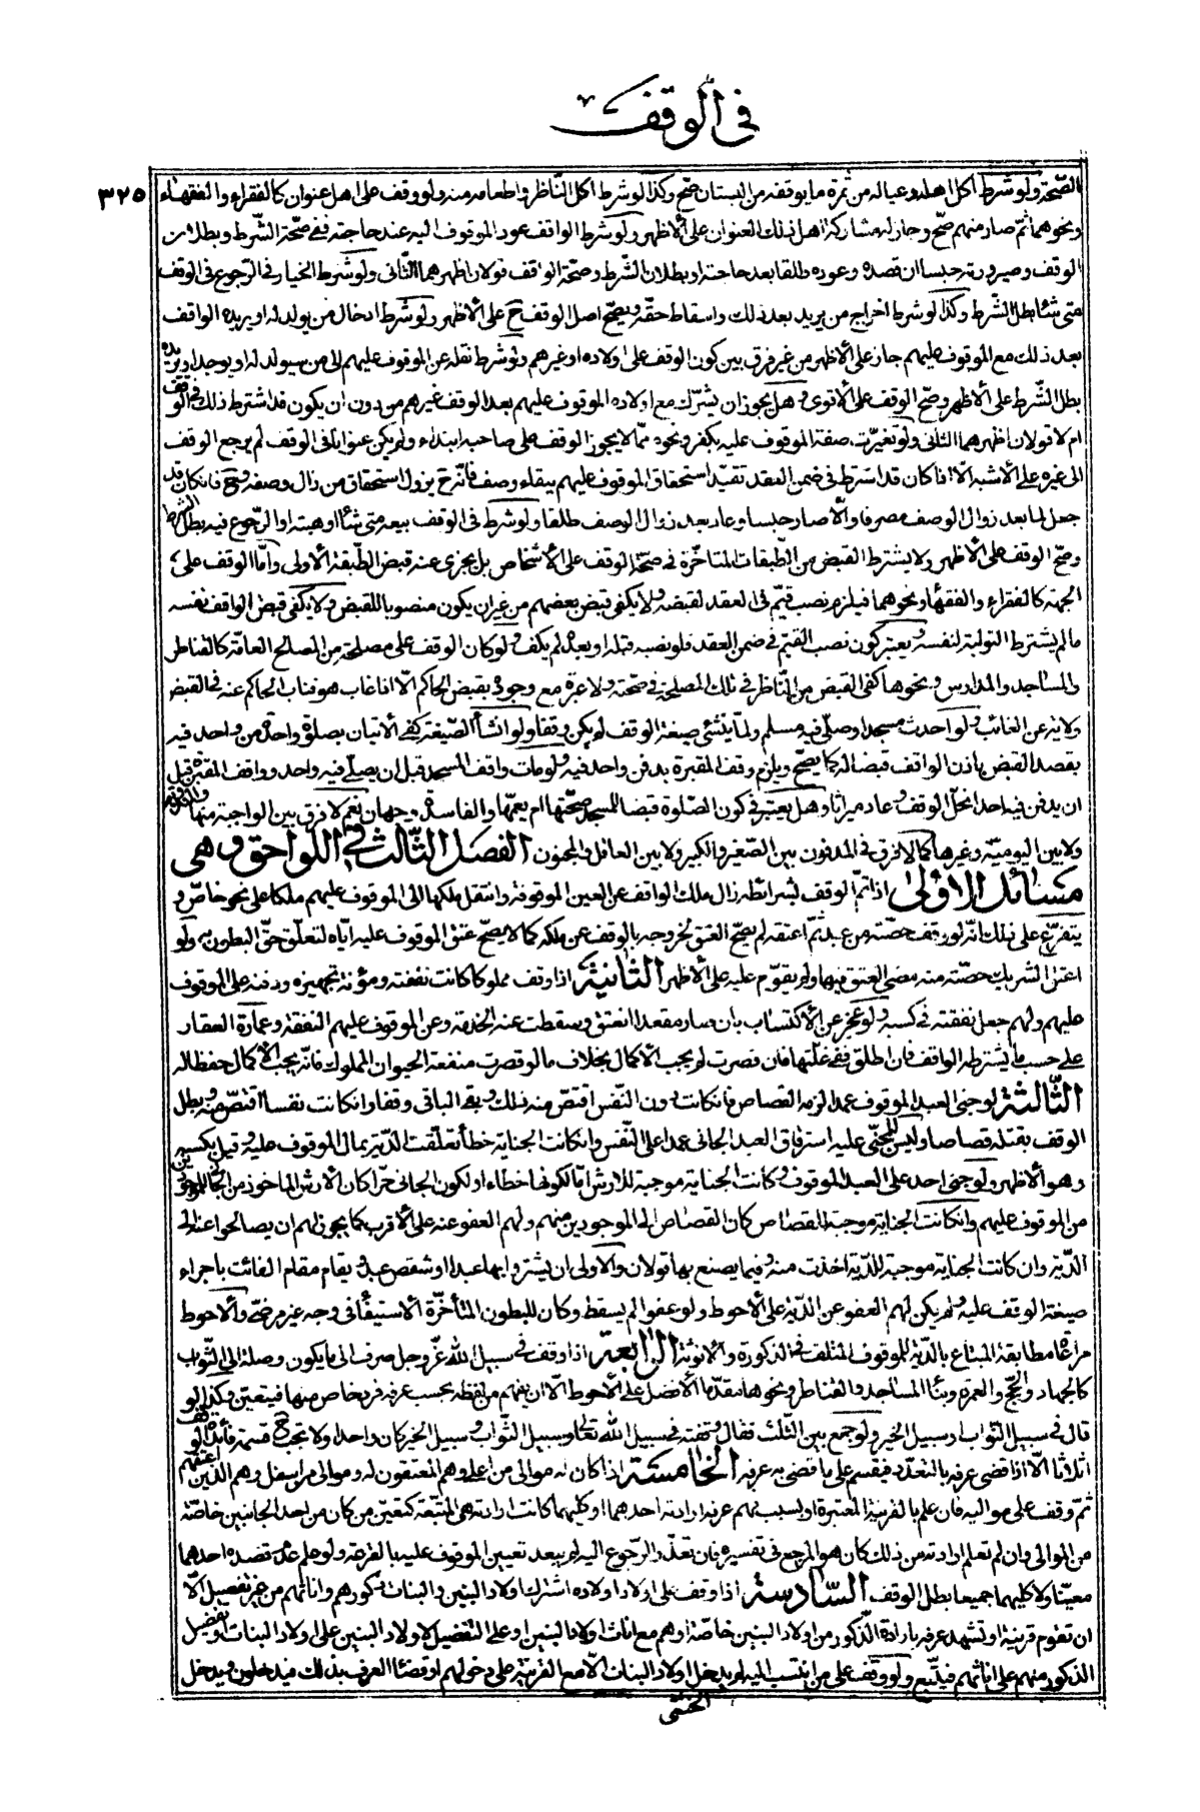 في الوقف
٣٢٥
الصّحة ولو شرط اكل اهله وعياله من ثمرة ما يوقفه من البستان صحّ وكذا لو شرط اكل النّاظر واطعامه منه ولو وقف على اهل عنوان كالفقراء والفقهاء
ونحوهما ثمّ صار منهم صحّ وجاز له مشاركة اهل ذلك العنوان على الأظهر ولو شرط الواقف عود الموقوف اليه عند حاجته ففي صحّة الشّرط وبطلان
الوقف وصيرورته حبسا ان قصده وعوده طلقا بعد حاجته او بطلان الشّرط وصحّة الوقف قولان اظهرهما الثّاني ولو شرط الخيار في الرّجوع في الوقف
متى شاء بطل الشّرط وكذا لو شرط اخراج من يريد بعد ذلك واسقاط حقّه ويصحّ اصل الوقف ح على الأظهر ولو شرط ادخال من يولد له او يريده الواقف
بعد ذلك مع الموقوف عليهم جاز على الأظهر من غير فرق بين كون الوقف على اولاده او غيرهم ولو شرط نقله عن الموقوف عليهم الى من سيولد له او يوجد او يريده
بطل الشّرط على الأظهر وصحّ الوقف على الأقوى وهل يجوز ان يشرّك مع اولاده الموقوف عليهم بعد الوقف غيرهم من دون ان يكون قد اشترط ذلك في الوقف
ام لا قولان اظهرهما الثاني ولو تغيّرت صفة الموقوف عليه بكفر ونحوه ممّا لا يجوز الوقف على صاحبه ابتداء ولم يكن عنوانا في الوقف لم يرجع الوقف
الى غيره على الأشبه الّا اذا كان قد اشترط في ضمن العقد تقيّد استحقاق الموقوف عليهم ببقاء وصف فانّه ح يزول استحقاق من زال وصفه وح فان كان قد
جعل لما بعد زوال الوصف مصرفا والّا صار حبسا وعاد بعد زوال الوصف طلقا ولو شرط في الوقف بيعه متى شاء او هبته او الرّجوع فيه بطل الشرط
وصحّ الوقف على الاظهر ولا يشترط القبض من الطّبقات المتاخّرة في صحّة الوقف على الأشخاص بل يجزى عنه قبض الطّبقة الأولى وامّا الوقف على
الجهة كالفقراء والفقهاء ونحوهما فيلزم نصب قيّم في العقد لقبضه ولا يكفي قبض بعضهم من غير ان يكون منصوبا للقبض ولا يكفي قبض الواقف نفسه
ما لم يشترط التولية لنفسه ويعتبر كون نصب القيّم في ضمن العقد فلو نصبه قبله او بعده لم يكف ولو كان الوقف على مصلحة من المصالح العامّة كالقناطر
والمساجد والمدارس ونحوها كفى القبض من النّاظر في تلك المصلحة في صحّته ولا عبرة مع وجوده بقبض الحاكم الّا اذا غاب هو فناب الحاكم عنه في القبض
ولاية عن الغائب ولو احدث مسجدا وصلّى فيه مسلم ولمّا ينشئ صيغة الوقف لم يكن وقفا ولو انشأ الصّيغة كفى الأتيان بصلوة واحدة من واحد فيه
بقصد القبض باذن الواقف قبضا له كما يصحّ ويلزم وقف المقبرة بدفن واحد فيه ولو مات واقف المسجد قبل ان يصلّى فيه واحد وواقف المقبرة قبل
ان يدفن فيه احد انحلّ الوقف وعاد ميراثا وهل يعتبر في كون الصّلوة قبضا للمسجد صحّتها ام يعمّها والفاسدة وجهان نعم لا فرق بين الواجبة منها والمندوبة
ولا بين اليوميّة وغيرها كما لا فرق في المدفون بين الصّغير والكبير ولا بين العاقل والمجنون الفصل الثّالث في اللّواحق وهي
مسائل الاولى اذا تمّ الوقف بشرائطه زال ملك الواقف عن العين الموقوفة وانتقل ملكها الى الموقوف عليهم ملكا على نحو خاصّ و
يتفرّع على ذلك انّه لو وقف حصّته من عبد ثمّ اعتقه لم يصحّ العتق لخروجه بالوقف عن ملكه كما لا يصحّ عتق الموقوف عليه ايّاه لتعلّق حقّ البطون به ولو
اعتق الشريك حصّته منه مضى العتق فيها ولم يقوّم عليه على الأظهر الثّانية اذا وقف مملوكا كانت نفقته ومؤنة تجهيزه ودفنه على الموقوف
عليهم ولهم جعل نفقته في كسبه ولو عجز عن الأكتساب بان صار مقعدا انعتق وسقطت عنه الخدمة وعن الموقوف عليهم النفقة وعمارة العقار
على حسب ما يشترطه الواقف فان اطلق ففي غلّتها فان قصرت لم يجب الأكمال بخلاف ما لو قصرت منفعة الحيوان المملوك فانّه يجب الأكمال حفظا له
الثّالثة لو جنى العبد الموقوف عمدا لزمه القصاص فان كانت دون النّفس اقتصّ منه ذلك وبقى الباقي وقفا وان كانت نفسا اقتصّ منه وبطل
الوقف بقتله قصاصا وليس للمجنّى عليه استرقاق العبد الجاني عمدا على النّفس وان كانت الجناية خطأ تعلّقت الدّية بمال الموقوف عليه وقيل بكسبه
وهو الأظهر ولو جنى احد على العبد الموقوف وكانت الجناية موجبة للارش امّا لكونها خطاء او لكون الجاني حرّا كان الأرش الماخوذ من الجاني للموجودين
من الموقوف عليهم وان كانت الجناية موجبة للقصاص كان القصاص الى الموجودين منهم ولهم العفو عنه على الأقرب كما يجوز لهم ان يصالحوا عنه الى
الدّية وان كانت الجناية موجبة للدّية اخذت منه وفيما يصنع بها قولان والأولى ان يشتروا بها عبدا او شقص عبد ويقام مقام الفائت باجراء
صيغة الوقف عليه ولم يكن لهم العفو عن الدّية على الأحوط ولو عفوا لم يسقط وكان للبطون المتأخّرة الأستيفاء في وجه غير مرضىّ والأحوط
مراعاة مطابقة المبتاع بالدّية للموقوف المتلف في الذكورة والأنوثة الرّابعة اذا وقف في سبيل الله عزّ وجل صرف الى ما يكون وصلة الى الثّواب
كالجهاد والحجّ والعمرة وبناء المساجد والقناطر ونحوها مقدّما الأفضل على الأحوط الّا ان يفهم من لفظه بحسب عرفه فرد خاص منها فيتعين وكذا لو
قال في سبيل الثّواب او سبيل الخير ولو جمع بين الثّلث فقال وقفته في سبيل الله تعالى وسبيل الثّواب وسبيل الخير كان واحدا ولا تجب ح قسمة فائدة الوقف
اثلاثا الّا اذا قضى عرفه بالتعدّد فيقسم على ما قضى به عرفه الخامسة اذا كان له موالى من اعلى وهم المعتقون له وموالى من اسفل وهم الّذين اعتقهم
ثمّ وقف على مواليه فان علم بالقرينة المعتبرة او بسبب فهم عرفه ارادته احدهما او كليهما كانت ارادته هي المتّبعة كتعيّن من كان من احد الجانبين خاصّة
من الموالى وان لم تعلم ارادته من ذلك كان هو المرجع في تفسيره فان تعذّر الرّجوع اليه لم يبعد تعيين الموقوف عليه بالقرعة ولو علم عدم قصده احدهما
معيّنا ولا كليهما جميعا بطل الوقف السّادسة اذا وقف على اولاد اولاده اشترك اولاد البنين والبنات ذكورهم واناثهم من غير تفصيل الّا
ان تقوم قرينة او يشهد عرفه بارادة الذّكور من اولاد البنين خاصّة او هم مع اناث اولاد البنين او على التفضيل لاولاد البنين على اولاد البنات او بفضيل
الذكور منهم على اناثهم فيتّبع ولو وقف على من انتسب اليه لم يدخل اولاد البنات الّا مع القرينة على دخولهم او قضاء العرف بذلك فيدخلون ويدخل
الخنثى